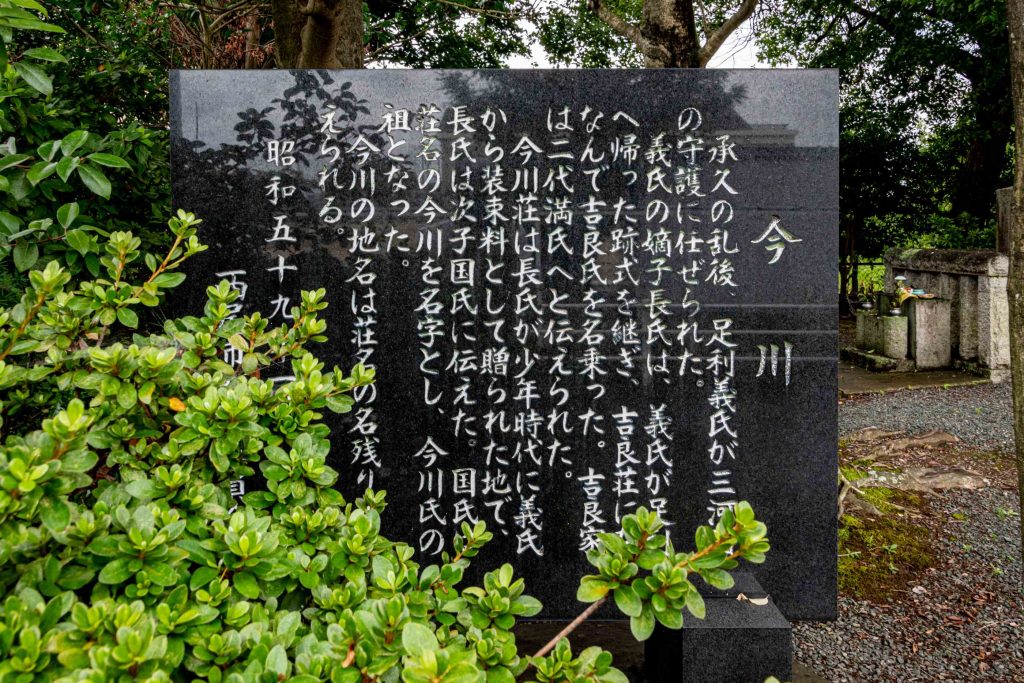 今川
承久の乱後、足利義氏が三河
の守護に任ぜられた。
義氏の嫡子長氏は、義氏が足
へ帰った跡式を継ぎ、吉良荘に
なんで吉良氏を名乗った。吉良家
は二代満氏へと伝えられた。
今川荘は長氏が少年時代に義氏
から装束料として贈られた地で、
長氏は次子国氏に伝えた。国氏
荘名の今川を名字とし、今川氏の
祖となった。
今川の地名は荘名の名残り
えられる。
昭和五十九
西 市